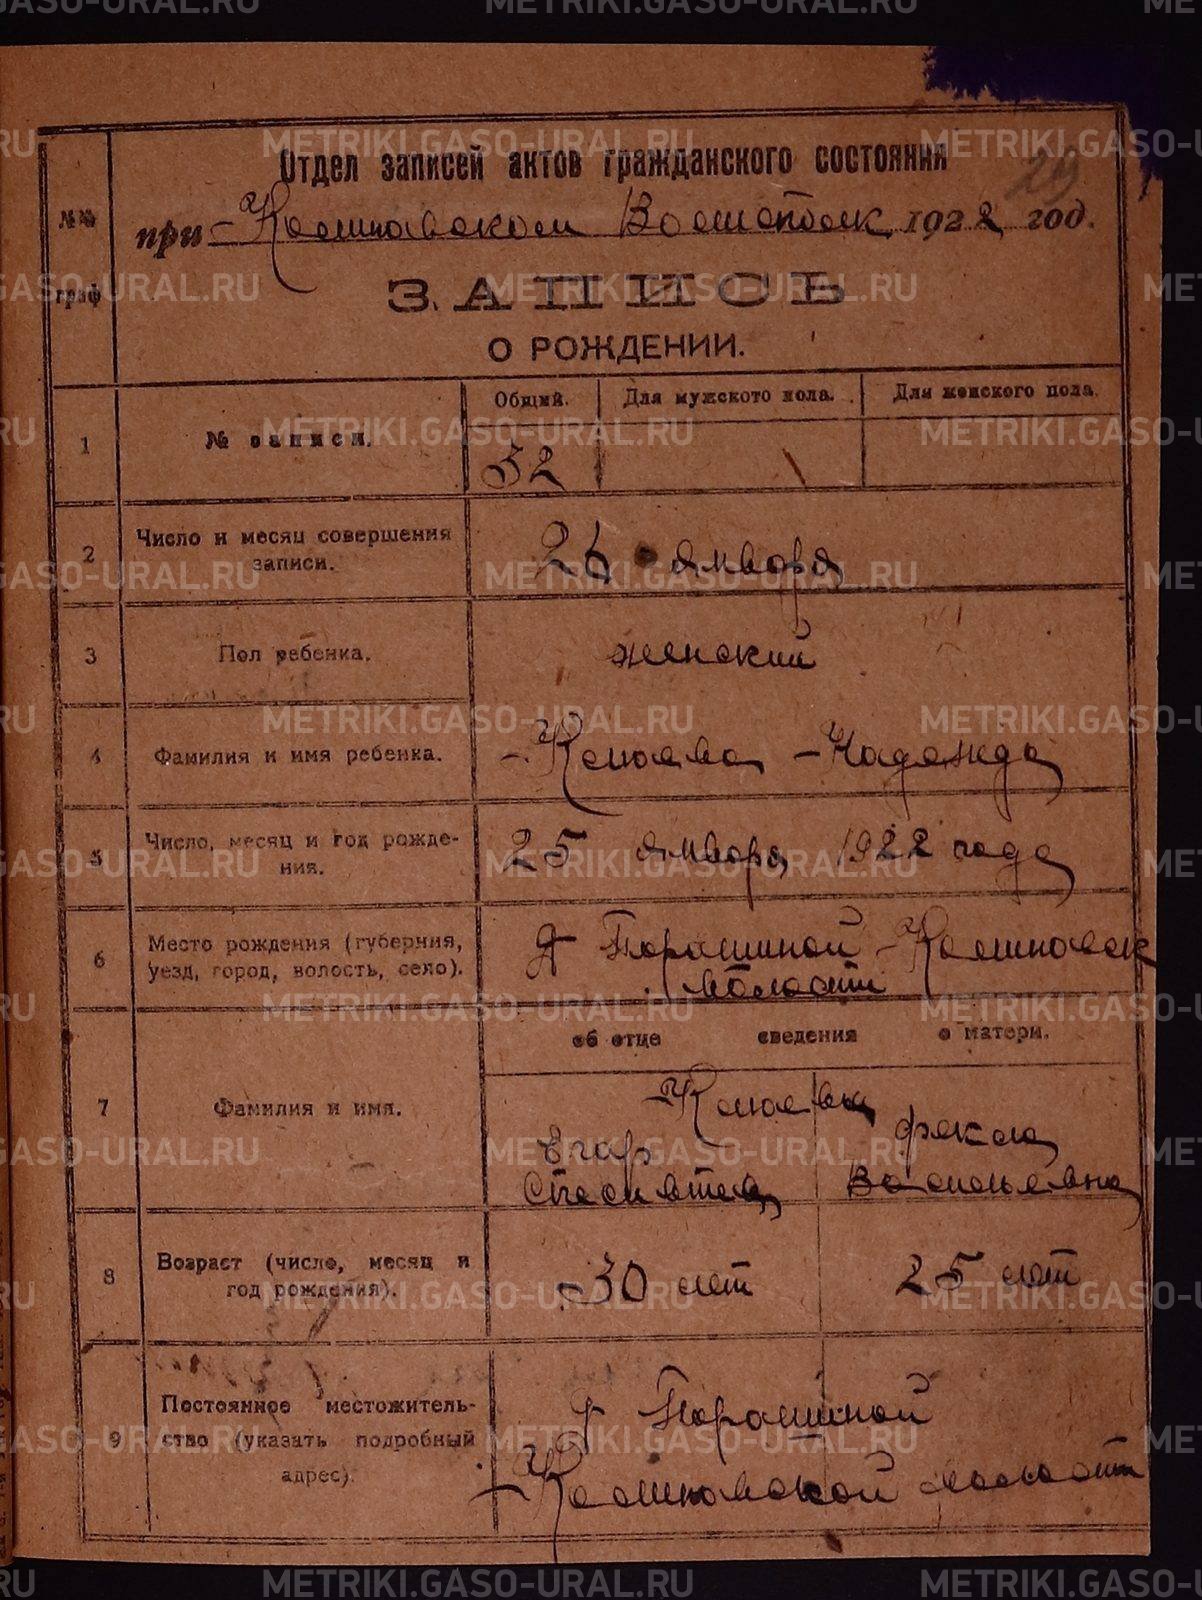 METRIKI.GASO-URAL.RU
29
Отдел записей актов гражданского состояния
при Колпаковском Волисполк 1922 год.
№№ граф
ЗАПИСЬ
О РОЖДЕНИИ.
Общий. Для мужского пола. Для женского пола.
1 № записи. 32
2 Число и месяц совершения
записи. 26 января
3 Пол ребенка. женский
4 Фамилия и имя ребенка. Надежда
5 Число, месяц и год рождения.
25 января 1922 года
6 Место рождения (губерния,
уезд, город, волость, село).
Д Порошиной
волости
об отце сведения о матери.
7 Фамилия и имя.
Егор Фекла
Васильевна
8 Возраст (число, месяц и
год рождения). 30 лет 25 лет
9 Постоянное местожитель-
ство (указать подробный
адрес).
Д Порошиной
волости